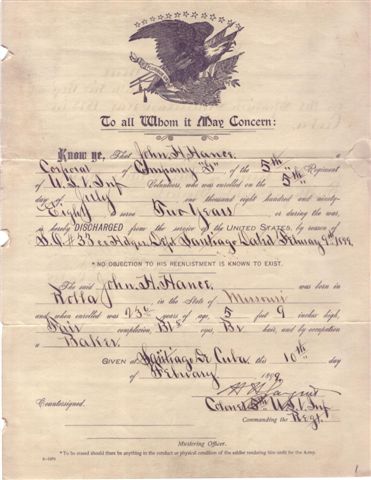 To all Whom it May Concern:
Know ye, That John H. Hance, a
Corporal of Company of the 5th Regiment
of U.S.V. Inf Volunteers, who was enrolled on the 5th
day of July one thousand eight hundred and ninety-
Eight to serve Two Years or during the war,
is hereby DISCHARGED from the service of the UNITED STATES, by reason of
S.O. #33 Hdqrs. Dept. Santiago Dated February 9th 1899
*NO OBJECTION TO HIS REENLISTMENT IS KNOWN TO EXIST.
The said John. H. Hance was born in
Rolla in the State of Missouri
and when enrolled was 23 years of age, 5 feet 9 inches high,
Fair complexion, eyes, Br hair, and by occupation
a Baker.
GIVEN at Santiago De Cuba this 10th day
of February 1899.
Countersigned.
Colonel 5th U.S.V. Inf
Commanding the Regt.
Mustering Officer.
*To be erased should there be anything in the conduct or physical condition of the soldier rendering him unfit for the Army.
1